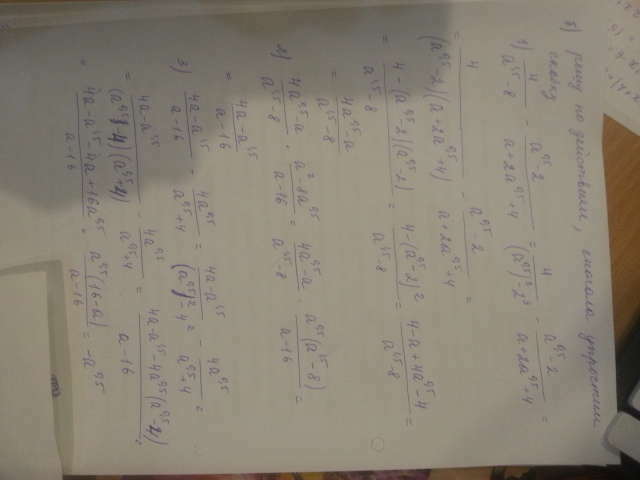 б) решу по действиям, сначала упростим
скобку
1) 4/(a^1,5-8) - (a^0,5-2)/(a+2a^0,5+4) = 4/((a^0,5)^3-2^3) - (a^0,5-2)/(a+2a^0,5+4) =
= 4/((a^0,5-2)(a+2a^0,5+4)) - (a^0,5-2)/(a+2a^0,5+4) =
= (4-(a^0,5-2)(a^0,5-2))/(a^1,5-8) = (4-(a^0,5-2)^2)/(a^1,5-8) = (4-a+4a^0,5-4)/(a^1,5-8) =
= (4a^0,5-a)/(a^1,5-8)
2) (4a^0,5-a)/(a^1,5-8) · (a^2-8a^0,5)/(a-16) = (4a^0,5-a)/(a^1,5-8) · (a^0,5(a^1,5-8))/(a-16) =
= (4a-a^1,5)/(a-16)
3) (4a-a^1,5)/(a-16) - 4a^0,5/(a^0,5+4) = (4a-a^1,5)/((a^0,5)^2-4^2) - 4a^0,5/(a^0,5+4) =
= (4a-a^1,5)/((a^0,5-4)(a^0,5+4)) - 4a^0,5/(a^0,5+4) = (4a-a^1,5-4a^0,5(a^0,5-4))/(a-16) =
= (4a-a^1,5-4a+16a^0,5)/(a-16) = (a^0,5(16-a))/(a-16) = -a^0,5